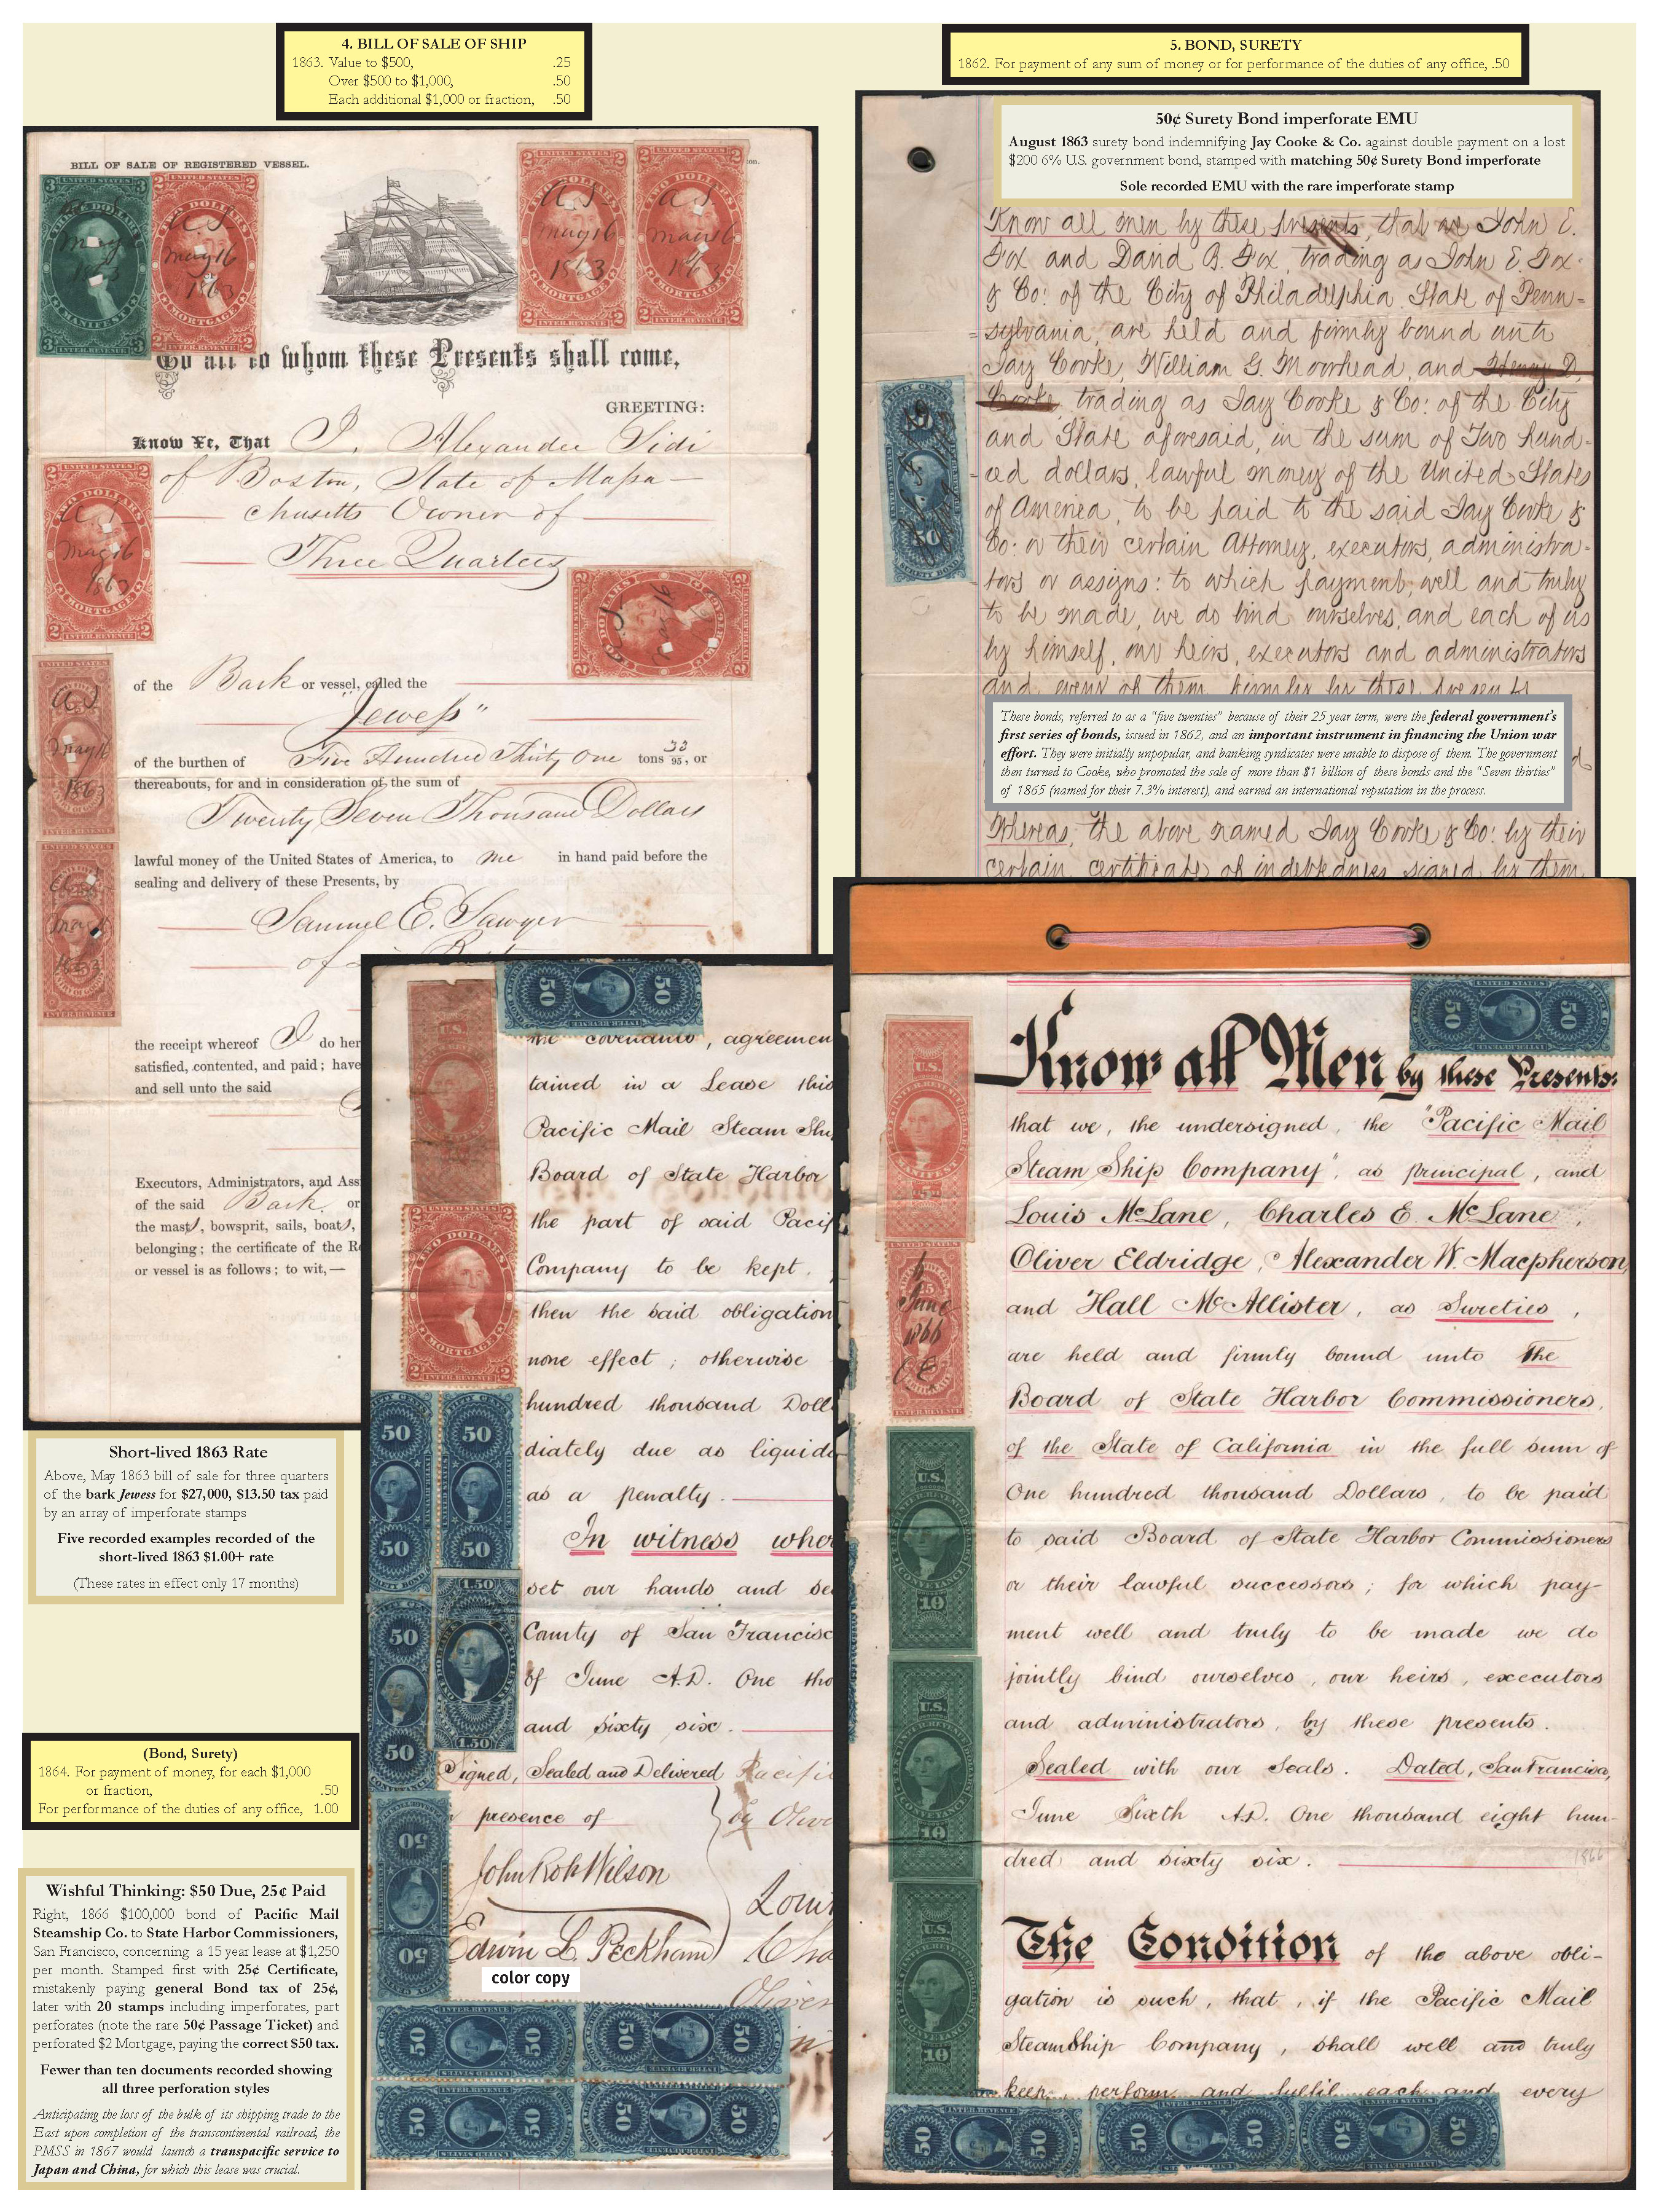 4. BILL OF SALE OF SHIP
1863. Value to $500, .25
Over $500 to $1,000, .50
Each additional $1,000 or fraction, .50
BILL OF SALE OF REGISTERED VESSEL.
To all to whom these Presents shall come,
GREETING:
Know Ye, That I, Alexander Sidi
of Boston, State of Massa-
chusetts Owner of
Three Quarters
of the Bark or vessel, called the
"Jewess"
of the burthen of Five Hundred Thirty One tons 33/95, or
thereabouts, for and in consideration of the sum of
Twenty Seven Thousand Dollars
lawful money of the United States of America, to me in hand paid before the
sealing and delivery of these Presents, by
Samuel E. Sawyer
of
the receipt whereof I do her
satisfied, contented, and paid; have
and sell unto the said
Executors, Administrators, and Ass
of the said Bark or
the mast, bowsprit, sails, boats,
belonging; the certificate of the Re
or vessel is as follows; to wit,—
Short-lived 1863 Rate
Above, May 1863 bill of sale for three quarters
of the bark Jewess for $27,000, $13.50 tax paid
by an array of imperforate stamps
Five recorded examples recorded of the
short-lived 1863 $1.00+ rate
(These rates in effect only 17 months)
(Bond, Surety)
1864. For payment of money, for each $1,000
or fraction, .50
For performance of the duties of any office, 1.00
Wishful Thinking: $50 Due, 25¢ Paid
Right, 1866 $100,000 bond of Pacific Mail
Steamship Co. to State Harbor Commissioners,
San Francisco, concerning a 15 year lease at $1,250
per month. Stamped first with 25¢ Certificate,
mistakenly paying general Bond tax of 25¢,
later with 20 stamps including imperforates, part
perforates (note the rare 50¢ Passage Ticket) and
perforated $2 Mortgage, paying the correct $50 tax.
Fewer than ten documents recorded showing
all three perforation styles
Anticipating the loss of the bulk of its shipping trade to the
East upon completion of the transcontinental railroad, the
PMSS in 1867 would launch a transpacific service to
Japan and China, for which this lease was crucial.
the covenants, agreemen
tained in a Lease this
Pacific Mail Steam Shi
Board of State Harbor
the part of said Pacif
Company to be kept,
then the said obligation
none effect; otherwise
hundred thousand Doll
diately due as liquid
as a penalty.
In witness wher
set our hands and se
County of San Francisc
of June A.D. One tho
and sixty six.
Signed, Sealed and Delivered Pacific
presence of by Olive
John Rob Wilson
Loui
Edwin L. Peckham Cha
color copy
Oliver
5. BOND, SURETY
1862. For payment of any sum of money or for performance of the duties of any office, .50
50¢ Surety Bond imperforate EMU
August 1863 surety bond indemnifying Jay Cooke & Co. against double payment on a lost
$200 6% U.S. government bond, stamped with matching 50¢ Surety Bond imperforate
Sole recorded EMU with the rare imperforate stamp
Know all men by these presents, that we John E.
Fox and David B. Fox, trading as John E. Fox
& Co: of the City of Philadelphia State of Penn-
sylvania, are held and firmly bound unto
Jay Cooke, William G. Moorhead, and Henry D.
Cooke, trading as Jay Cooke & Co: of the City
and State aforesaid, in the sum of Two hund-
red dollars, lawful money of the United States
of America, to be paid to the said Jay Cooke &
Co: or their certain Attorney, executors, administra-
tors or assigns: to which payment, well and truly
to be made, we do bind ourselves, and each of us
by himself, our heirs, executors and administrators
and every of them, firmly by these presents
These bonds, referred to as a "five twenties" because of their 25 year term, were the federal government's
first series of bonds, issued in 1862, and an important instrument in financing the Union war
effort. They were initially unpopular, and banking syndicates were unable to dispose of them. The government
then turned to Cooke, who promoted the sale of more than $1 billion of these bonds and the "Seven thirties"
of 1865 (named for their 7.3% interest), and earned an international reputation in the process.
Whereas, the above named Jay Cooke & Co: by their
certain certificate of indebtedness signed by them,
Know all Men by these Presents:
that we, the undersigned, the "Pacific Mail
Steam Ship Company", as principal, and
Louis McLane, Charles E. McLane,
Oliver Eldridge, Alexander W. Macpherson,
and Hall McAllister, as Sureties,
are held and firmly bound unto The
Board of State Harbor Commissioners,
of the State of California in the full sum of
One hundred thousand Dollars, to be paid
to said Board of State Harbor Commissioners
or their lawful successors; for which pay-
ment well and truly to be made we do
jointly bind ourselves, our heirs, executors
and administrators, by these presents.
Sealed with our Seals. Dated, San Francisco,
June Sixth A.D. One thousand eight hun-
dred and sixty six.
1866
The Condition of the above obli-
gation is such, that, if the Pacific Mail
SteamShip Company, shall well and truly
keep, perform and fulfil each and every